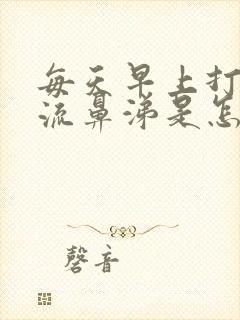 每天早上打
流鼻涕是怎
磬音